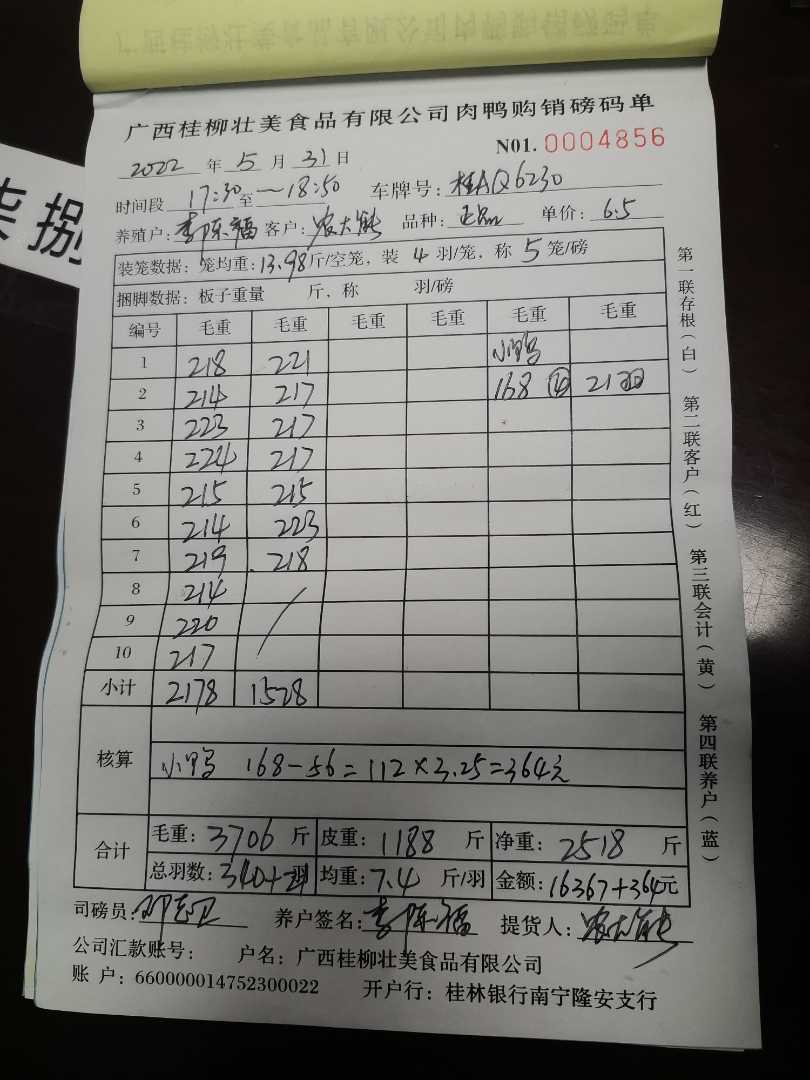 广西桂柳壮美食品有限公司肉鸭购销磅码单
柒捌
2022 年 5 月 31 日 N01. 0004856
时间段 17:30 至 —18:50 车牌号: 桂AQ6230
养殖户: 李陈福 客户: 农大能 品种: 正品 单价: 6.5
装笼数据: 笼均重: 13.98 斤/空笼, 装 4 羽/笼, 称 5 笼/磅
捆脚数据: 板子重量 斤, 称 羽/磅
编号 毛重 毛重 毛重 毛重 毛重 毛重
1 218 221 小鸭
2 214 217 168 ④ 21羽
3 223 217
4 224 217
5 215 215
6 214 223
7 219 218
8 214
9 220
10 217
小计 2178 1528
核算 小鸭 168-56=112×3.25=364元
合计 毛重: 3706 斤 皮重: 1188 斤 净重: 2518 斤
总羽数: 340+21 羽 均重: 7.4 斤/羽 金额: 16367+364元
司磅员: 养户签名: 李陈福 提货人: 农大能
公司汇款账号: 户名: 广西桂柳壮美食品有限公司
账 户: 660000014752300022 开户行: 桂林银行南宁隆安支行
第一联存根(白) 第二联客户(红) 第三联会计(黄) 第四联养户(蓝)